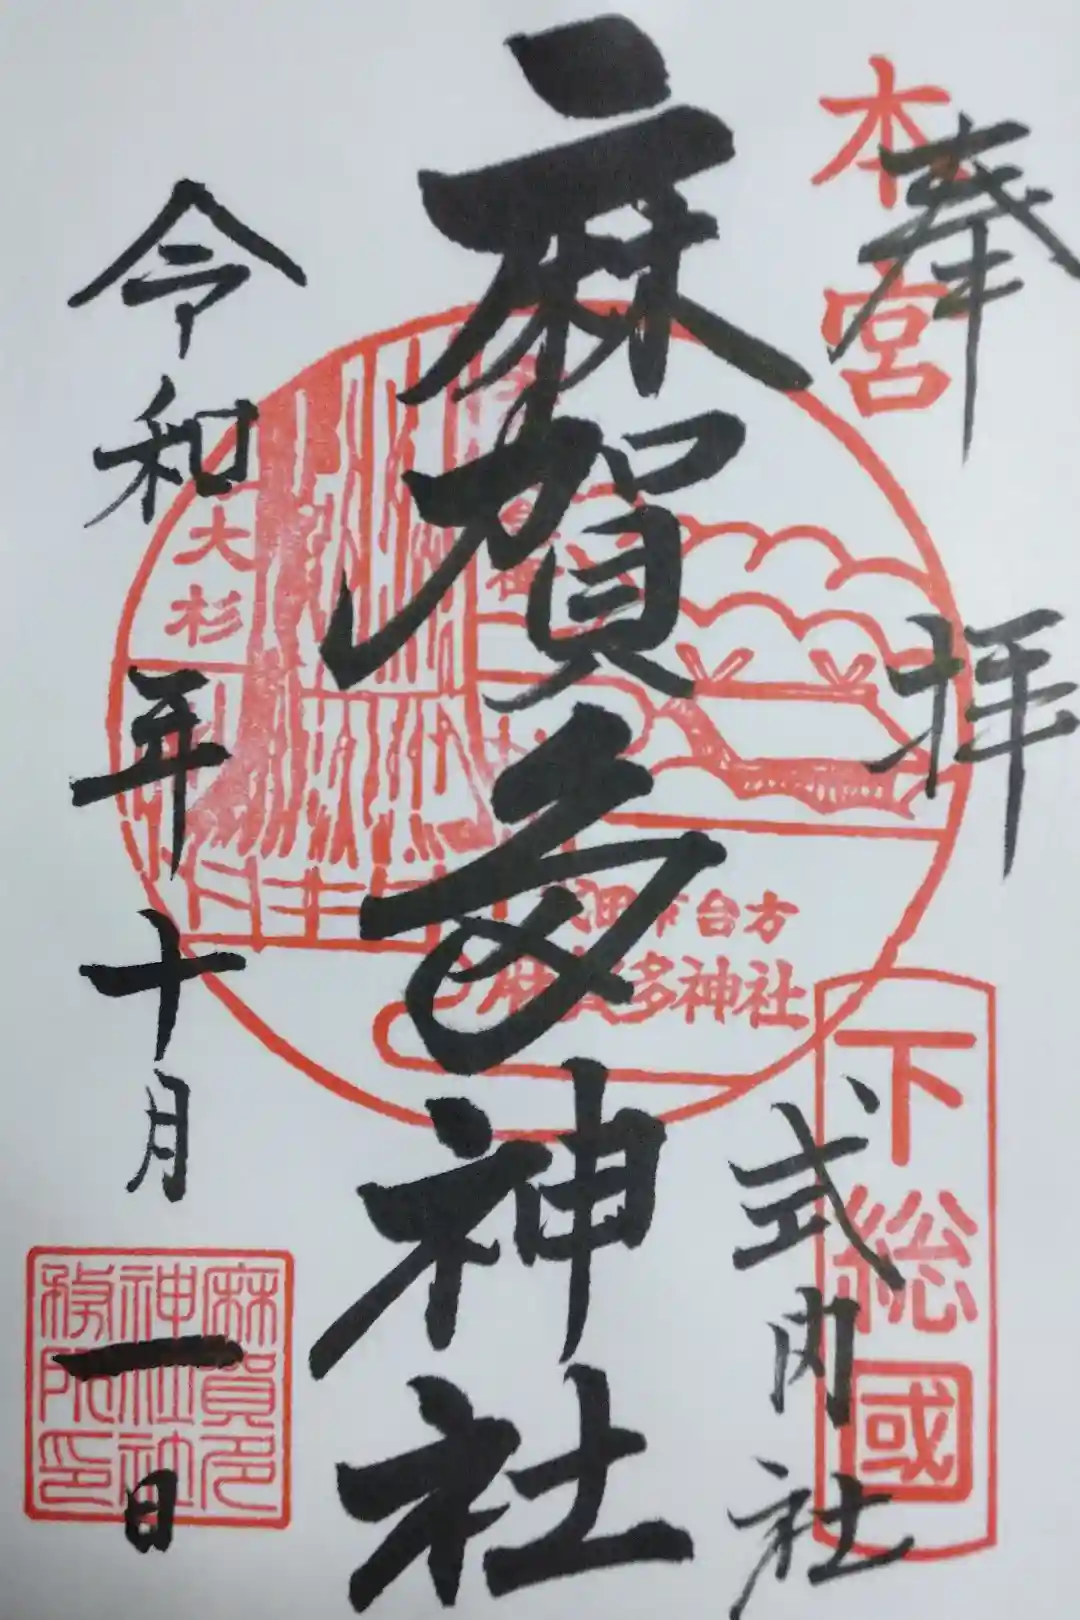 奉拝
本宮
式内社
下総國
麻賀多神社
大杉
台方
麻賀多神社
令和 年十月一日
麻賀多
神社社
務所印